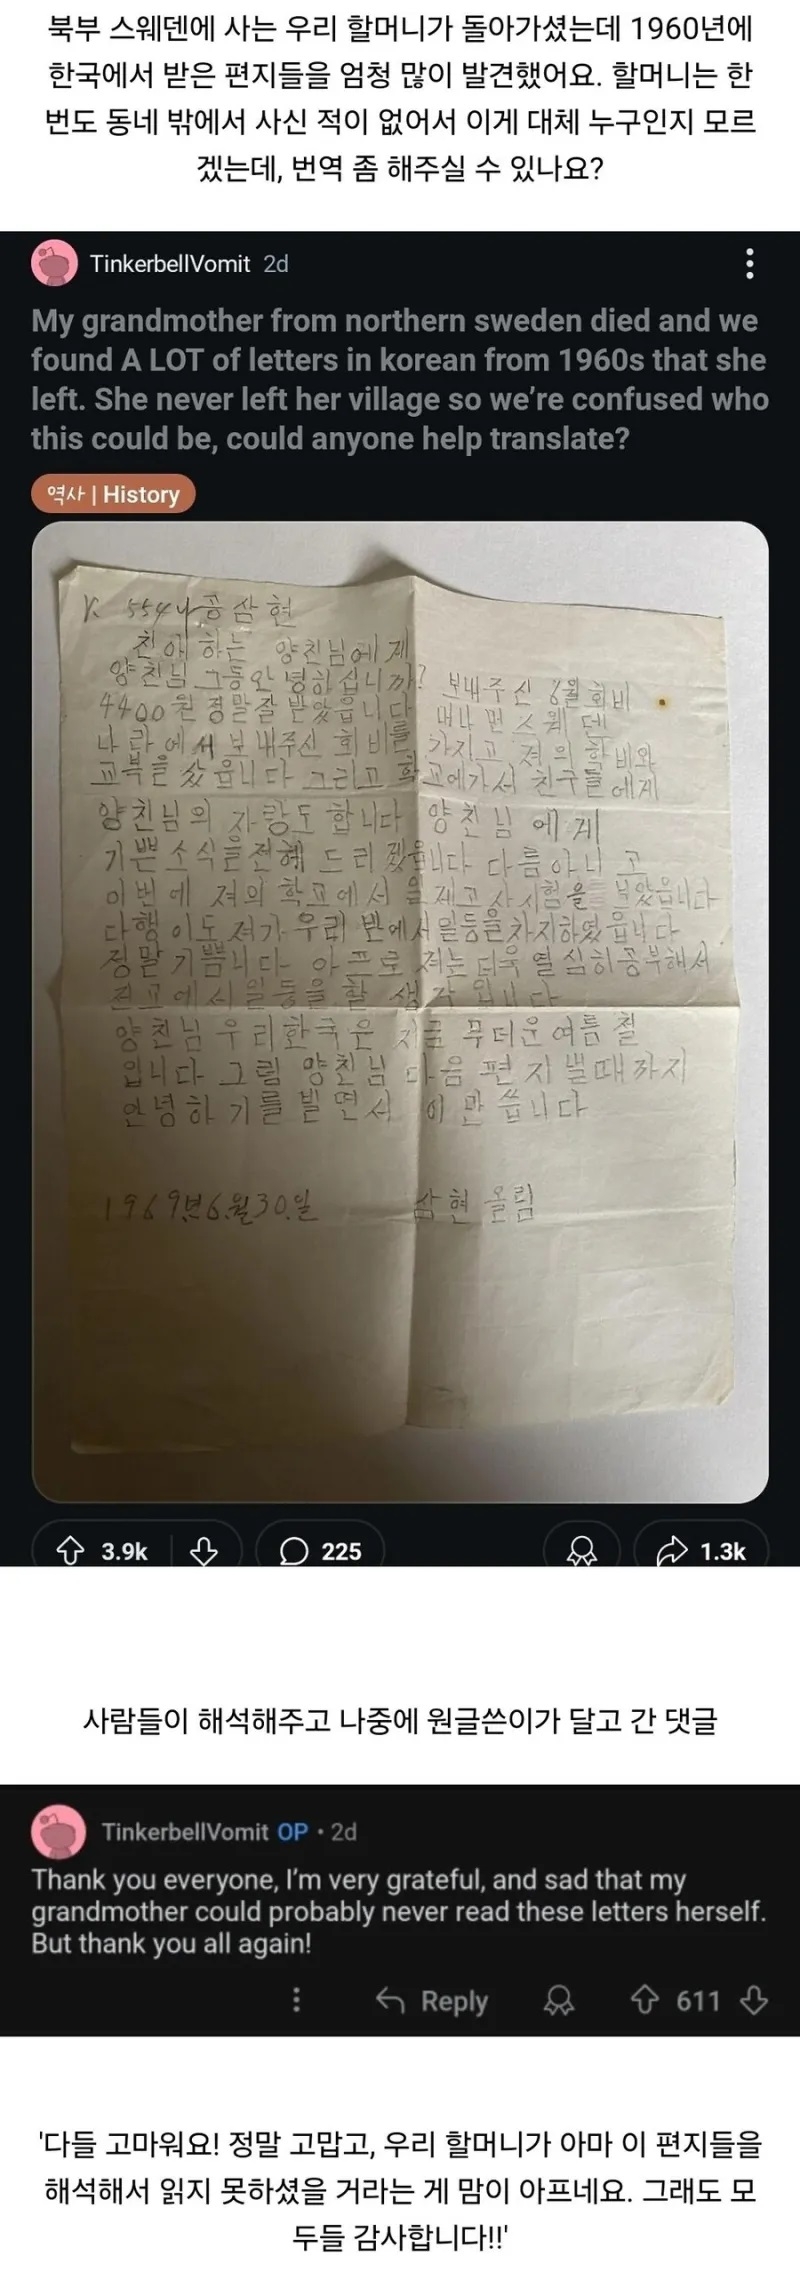 북부 스웨덴에 사는 우리 할머니가 돌아가셨는데 1960년에
한국에서 받은 편지들을 엄청 많이 발견했어요. 할머니는 한
번도 동네 밖에서 사신 적이 없어서 이게 대체 누구인지 모르
겠는데, 번역 좀 해주실 수 있나요?
TinkerbellVomit 2d
My grandmother from northern sweden died and we
found A LOT of letters in korean from 1960s that she
left. She never left her village so we're confused who
this could be, could anyone help translate?
역사 | History
K. 554 공삼현
친애하는 양친님에게
양친님 그동안 녕히 십니까? 보내주신 6월 회비
4400원 정말잘 받았읍니다 머나 먼 스웨덴
나라에서 보내주신 회비를 가지고 져의 학비와
교복을 샀읍니다 그리고 학교에가서 친구들에게
양친님의 자랑도 합니다 양친님에게
기쁜 소식을전해 드리겠읍니다 다름아니고
이번에 져의 학교에서 일제고사시험을 보았읍니다
다행이도 져가 우리 반에서일등을차지하였읍니다
정말기쁨니다 아프로 져는 더욱 열심히공부해서
전교에서일등을 할 생각입니다
양친님 우리한국은 지금 무더운여름철
입니다 그럼 양친님 다음 편지낼때까지
안녕하기를 빌면서 이만 씁니다
1969년6월30일 삼현 올림
3.9k 225 1.3k
사람들이 해석해주고 나중에 원글쓴이가 달고 간 댓글
TinkerbellVomit OP • 2d
Thank you everyone, I'm very grateful, and sad that my
grandmother could probably never read these letters herself.
But thank you all again!
Reply 611
'다들 고마워요! 정말 고맙고, 우리 할머니가 아마 이 편지들을
해석해서 읽지 못하셨을 거라는 게 맘이 아프네요. 그래도 모
두들 감사합니다!!'